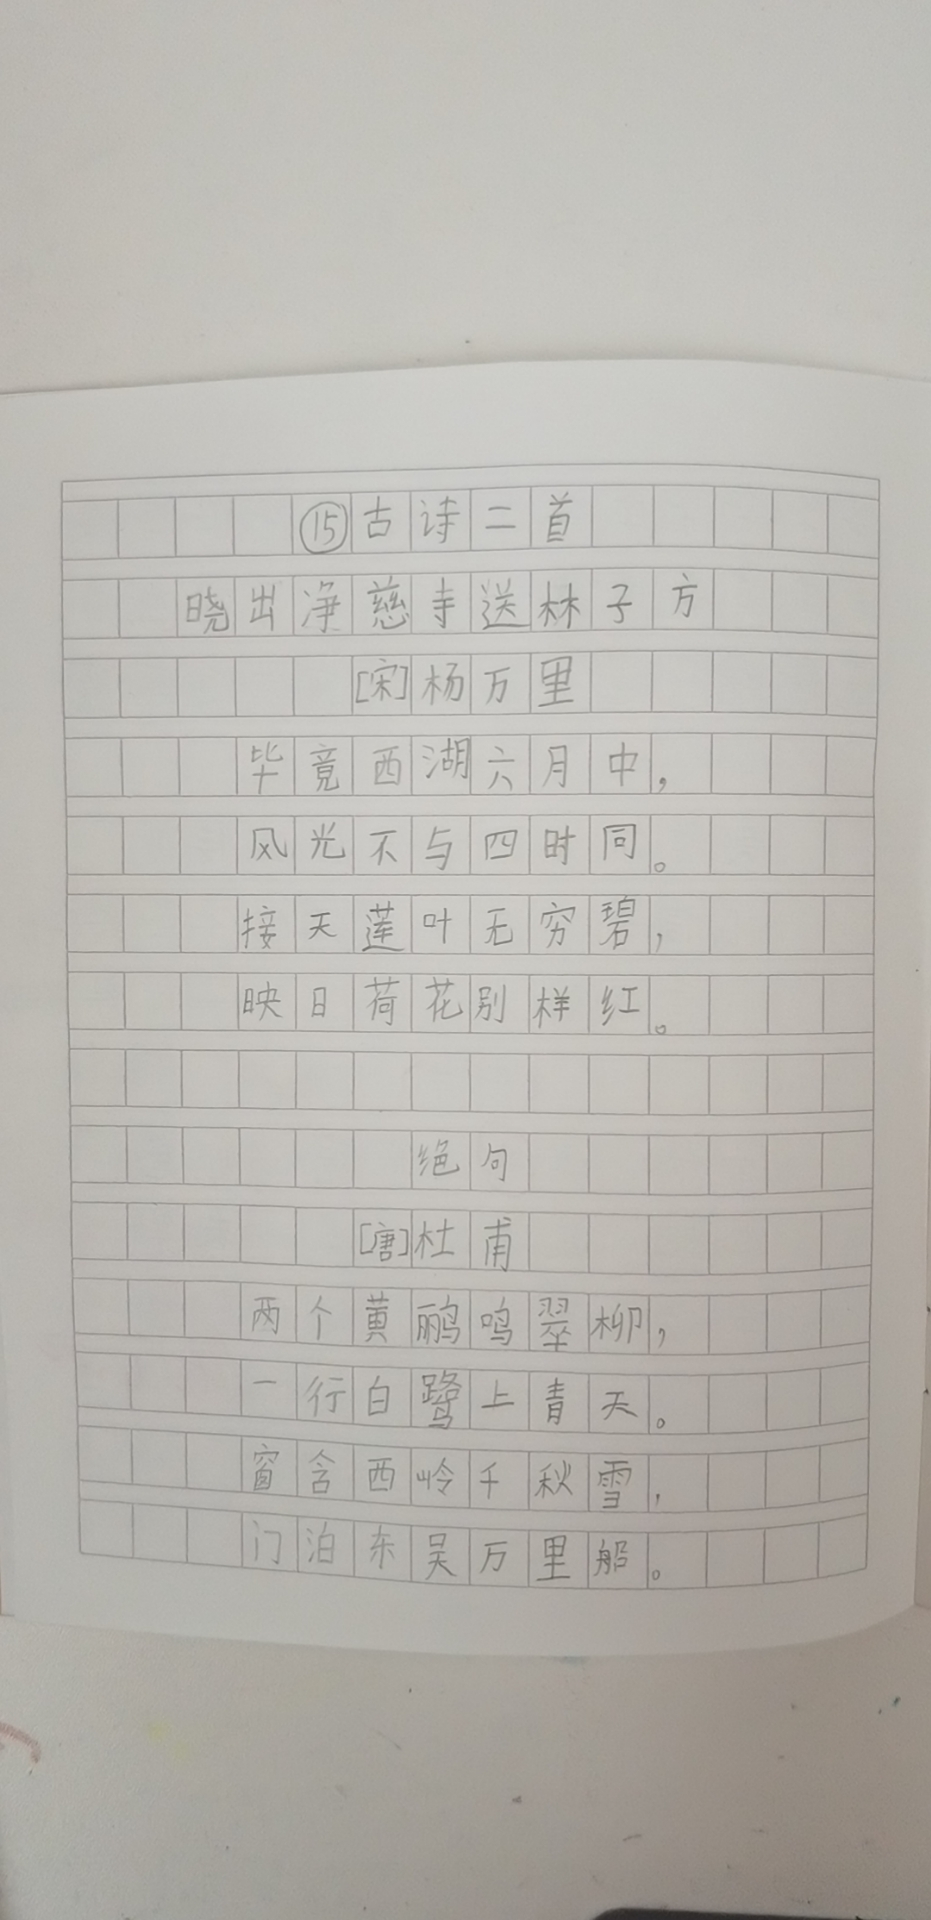 ⑮古诗二首
晓出净慈寺送林子方
[宋]杨万里
毕竟西湖六月中，
风光不与四时同。
接天莲叶无穷碧，
映日荷花别样红。
绝句
[唐]杜甫
两个黄鹂鸣翠柳，
一行白鹭上青天。
窗含西岭千秋雪，
门泊东吴万里船。